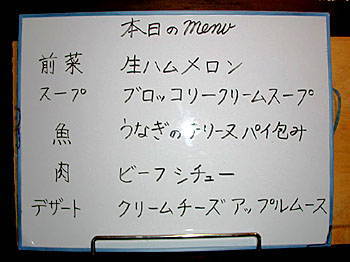 本日のmenu
前菜 生ハムメロン
スープ ブロッコリークリームスープ
魚 うなぎのテリーヌパイ包み
肉 ビーフシチュー
デザート クリームチーズアップルムース